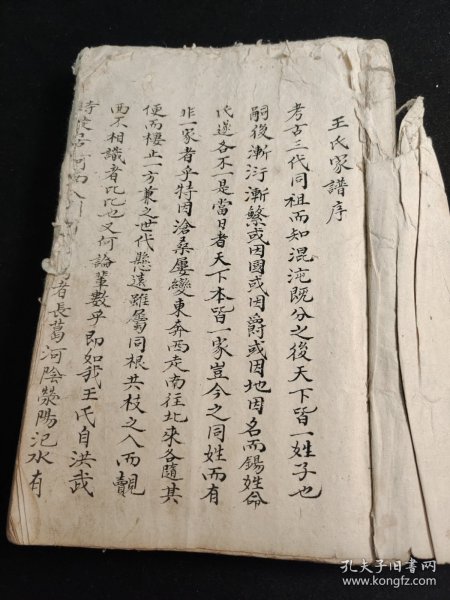 王氏家譜序
考古三代同祖而知混沌既分之後天下皆一姓子也
嗣後漸衍漸繁或因國或因爵或因地因名而錫姓命
氏遂各不一是當日者天下本皆一家豈今之同姓而有
非一家者乎特因滄桑屢變東奔西走南往北來各隨其
便而棲止一方兼之世代懸遠雖屬同根共枝之人而覿
面不相識者比比也又何論輩數乎即如我王氏自洪武
時 居河 者長葛河陰滎陽汜水有
孔夫子旧书网
www.kongfz.com